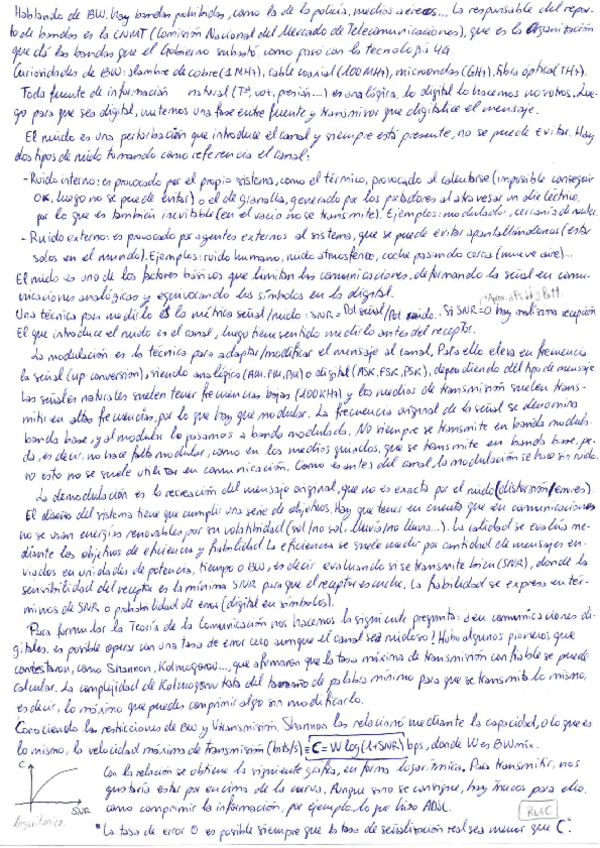 Hablando de BW, hay bandas prohibidas, como la de la policía, medios aéreos... La responsable del repar-
to de bandas es la CNMT (Comisión Nacional del Mercado de Telecomunicaciones), que es la organización
que dá las bandas que el Gobierno subastó, como pasó con la tecnología 4G.
Curiosidades de BW: alambre de cobre (1 MHz), cable coaxial (100 MHz), microondas (GHz), fibra óptica (THz).
Toda fuente de información natural (Tª, voz, presión...) es analógica, lo digital lo hacemos nosotros. Lue-
go para que sea digital, metemos una fase entre fuente y transmisor que digitalice el mensaje.
El ruido es una perturbación que introduce el canal y siempre está presente, no se puede evitar. Hay
dos tipos de ruido tomando como referencia el canal:
- Ruido interno: es provocado por el propio sistema, como el térmico, provocado al calentarse (imposible conseguir
0K, luego no se puede evitar) o el de granalla, generado por los portadores al atravesar un dieléctrico,
por lo que es también inevitable (en el vacío no se transmite). Ejemplos: modulador, cercanía de router.
- Ruido externo: es provocado por agentes externos al sistema, que se puede evitar apantallándonos (estar
solos en el mundo). Ejemplos: ruido humano, ruido atmosférico, coche pasando cerca (mueve aire)...
El ruido es uno de los factores básicos que limitan las comunicaciones, deformando la señal en comu-
nicaciones analógicas y equivocando los símbolos en la digital.
Una técnica para medirlo es la métrica señal/ruido: SNR = Pot señal/Pot ruido. Si SNR=0 hay malísima recepción
El que introduce el ruido es el canal, luego tiene sentido medirlo antes del receptor.
La modulación es la técnica para adaptar/modificar el mensaje al canal. Para ello eleva en frecuencia
la señal (up-conversion), siendo analógica (AM, FM, PM) o digital (ASK, FSK, PSK), dependiendo del tipo de mensaje.
Las señales naturales suelen tener frecuencias bajas (100KHz) y los medios de transmisión suelen trans-
mitir en altas frecuencias, por lo que hay que modular. La frecuencia original de la señal se denomina
banda base, y al modular lo pasamos a banda modulada. No siempre se transmite en banda modula-
da, es decir, no hace falta modular, como en los medios guiados, que se transmite en banda base, pe-
ro esto no se suele utilizar en comunicación. Como es antes del canal, la modulación se hace sin ruido.
La demodulación es la recreación del mensaje original, que no es exacta por el ruido (distorsión/errores).
El diseño del sistema tiene que cumplir una serie de objetivos. Hay que tener en cuenta que en comunicaciones
no se usan energías renovables por su volatilidad (sol/no sol, lluvia/no llueva...). La calidad se evalúa me-
diante los objetivos de eficiencia y fiabilidad. La eficiencia se suele medir por cantidad de mensajes en-
viados en unidades de potencia, tiempo o BW, es decir evaluando si se transmite bien (SNR), donde la
sensibilidad del receptor es la mínima SNR para que el receptor escuche. La fiabilidad se expresa en tér-
minos de SNR o probabilidad de error (digital en símbolos).
Para formular la Teoría de la Comunicación nos hacemos la siguiente pregunta: ¿en comunicaciones di-
gitales, es posible operar con una tasa de error cero aunque el canal sea ruidoso? Hubo algunos pioneros que
contestaron, como Shannon, Kolmogorov..., que afirmaron que la tasa máxima de transmisión confiable se puede
calcular. La complejidad de Kolmogorov trata del tamaño de palabra mínimo para que se transmita lo mismo,
es decir, lo máximo que puedes comprimir algo sin modificarlo.
Conociendo las restricciones de BW y Vtransmisión, Shannon las relacionó mediante la capacidad, o lo que es
lo mismo, la velocidad máxima de transmisión (bits/s) = C = W log(1+SNR) bps, donde W es BWmáx.
Con la relación se obtiene la siguiente gráfica, en forma logarítmica. Para transmitir, nos
gustaría estar por encima de la curva. Aunque si no se consigue, hay trucos para ello,
como comprimir la información, por ejemplo lo que hizo ADSL.
C
SNR
logarítmica
R<C
"La tasa de error 0 es posible siempre que la tasa de señalización real sea menor que C".